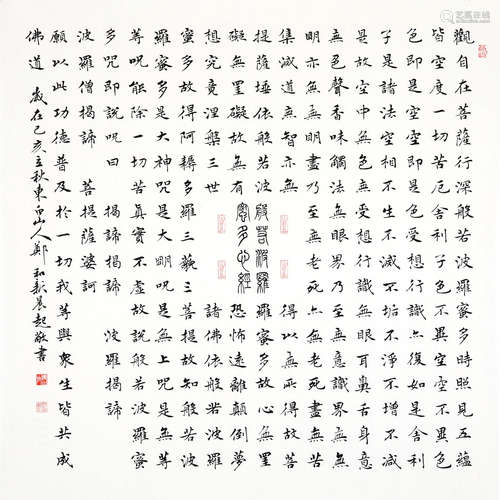 觀自在菩薩行深般若波羅蜜多時照見五蘊
皆空度一切苦厄舍利子色不異空空不異色
色即是空空即是色受想行識亦復如是舍利
子是諸法空相不生不滅不垢不淨不增不減
是故空中無色無受想行識無眼耳鼻舌身意
無色聲香味觸法無眼界乃至無意識界無無
明亦無無明盡乃至無老死亦無老死盡無苦
集滅道無智亦無 得以無所得故菩
提薩埵依般若波 羅蜜多故心無罣
礙無罣礙故無有 恐怖遠離顛倒夢
想究竟涅槃三世 諸佛依般若波羅
般若波羅
蜜多心經
蜜多故得阿耨多羅三藐三菩提故知般若波
羅蜜多是大神咒是大明咒是無上咒是無等
等咒能除一切苦真實不虛故說般若波羅蜜
多咒即說咒曰 揭諦揭諦 波羅揭諦
波羅僧揭諦 菩提薩婆訶
願以此功德普及於一切我等與眾生皆共成
佛道 歲在己亥立秋東白山人鄭和新晨起敬書